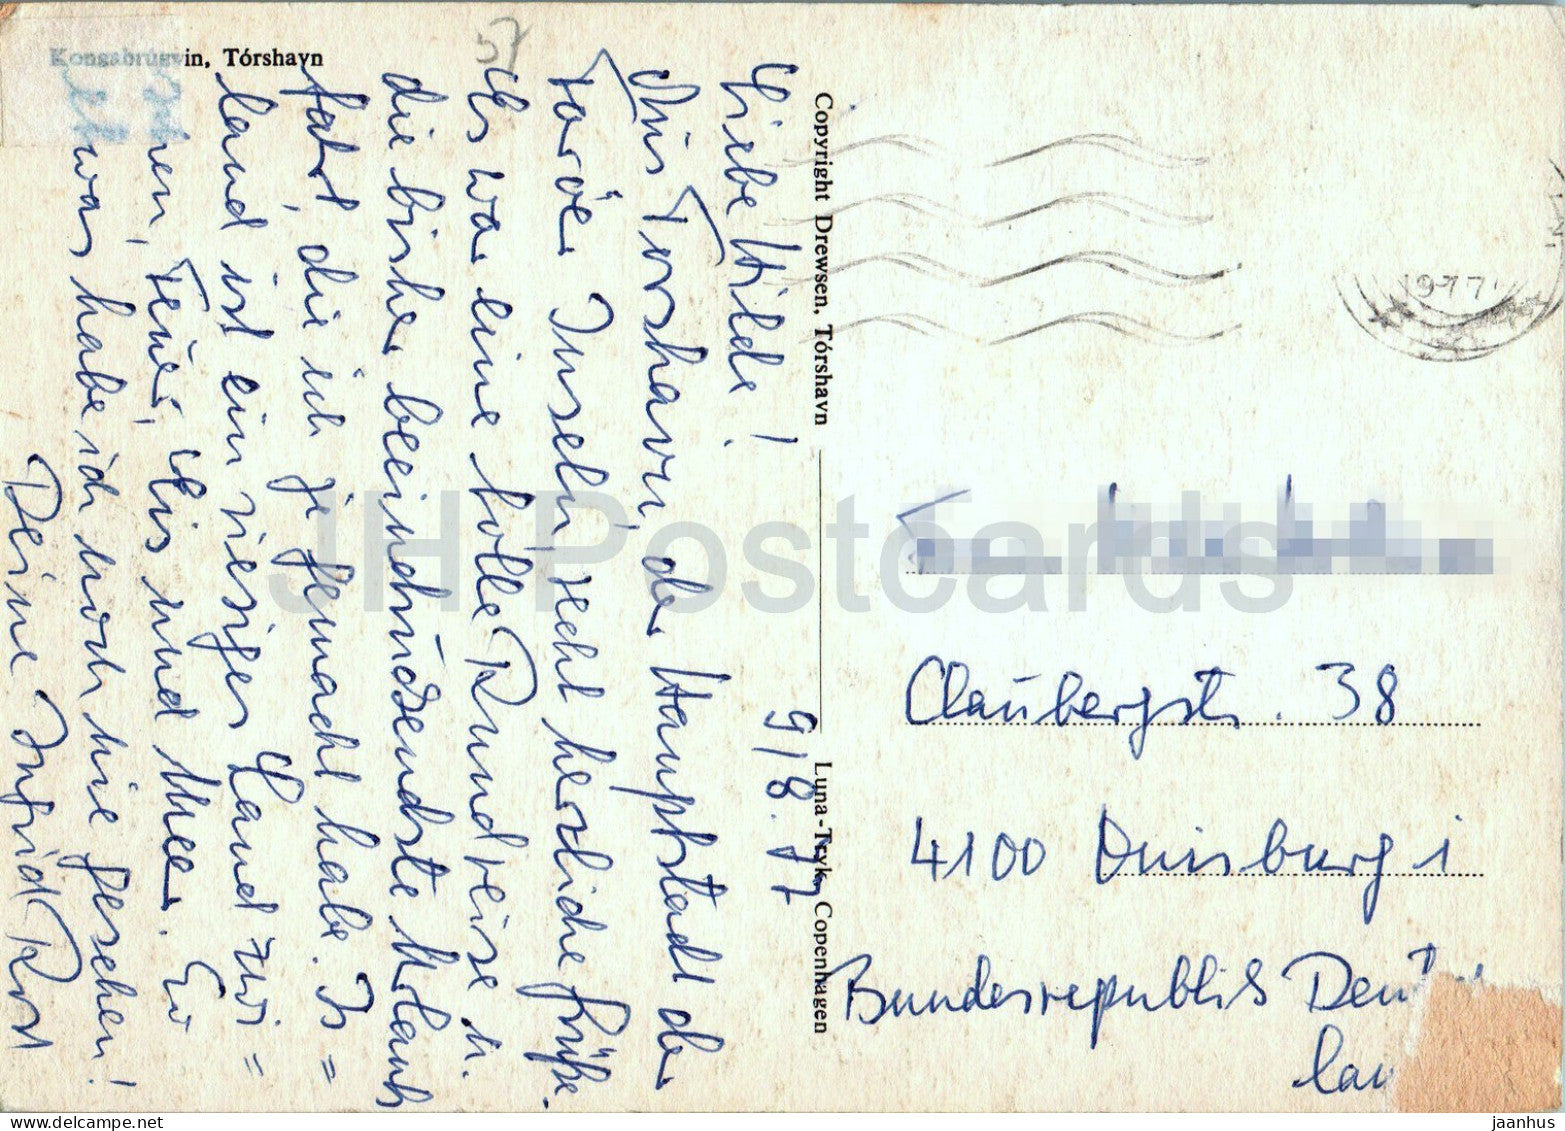 Kongabrúgvin, Tórshavn
57
Liebe Hilde!
9/8.77
Aus Torshavn, der Hauptstadt der
Faröer Inseln, recht herzliche Grüße.
Es war eine tolle Rundreise u.
die bisher beeindruckendste Urlaubs
fahrt, die ich je gemacht habe. Is=
land ist ein riesiges Land zwi=
schen, Feuer, Eis und Meer. So
etwas habe ich noch nie gesehen!
Deine Ingrid Rost
Copyright Drewsen, Tórshavn
Luna-Tryk, Copenhagen
1977
Claubergstr. 38
4100 Duisburg 1
Bundesrepublik Deut
lan
JH Postcards
www.delcampe.net
jaanhus